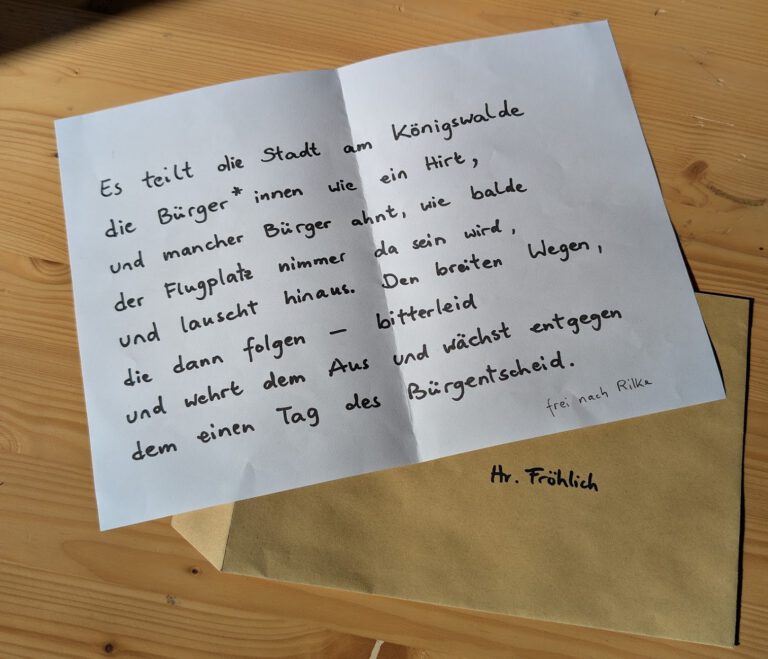 Es teilt die Stadt am Königswalde
die Bürger*innen wie ein Hirt,
und mancher Bürger ahnt, wie balde
der Flugplatz nimmer da sein wird,
und lauscht hinaus. Den breiten Wegen,
die dann folgen – bitterleid
und wehrt dem Aus und wächst entgegen
dem einen Tag des Bürgentscheid.
frei nach Rilka
Hr. Fröhlich